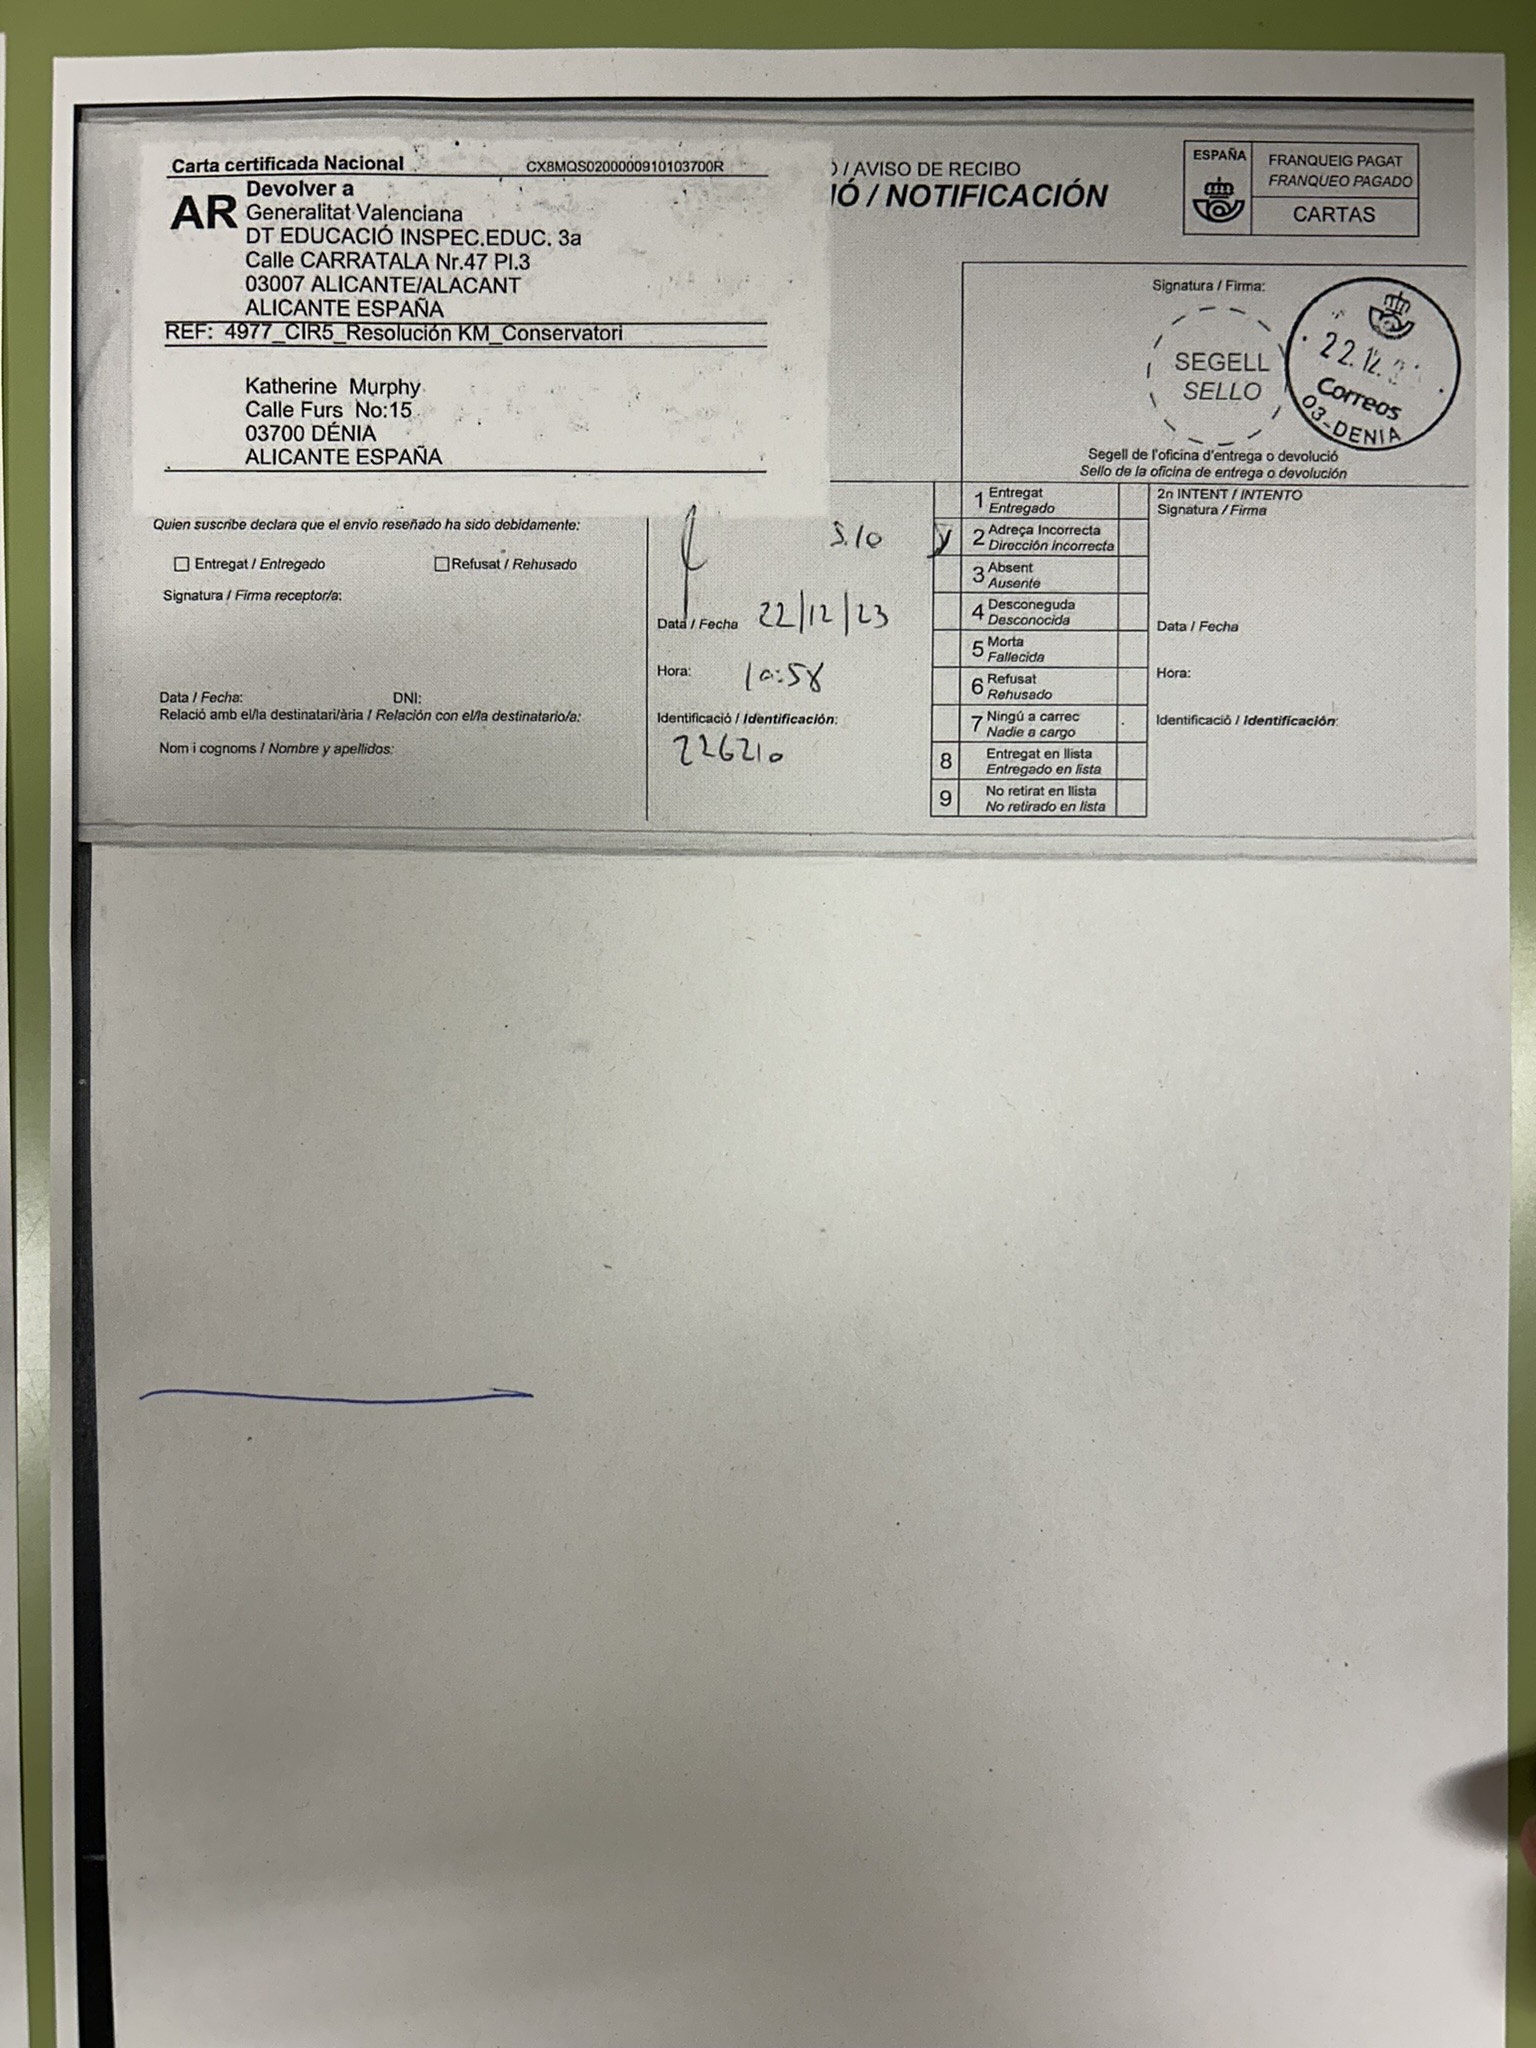 Carta certificada Nacional
CX8MQS0200000910103700R
AR
Devolver a
Generalitat Valenciana
DT EDUCACIÓ INSPEC.EDUC. 3a
Calle CARRATALA Nr.47 Pl.3
03007 ALICANTE/ALACANT
ALICANTE ESPAÑA
REF: 4977_CIR5_Resolución KM_Conservatori
Katherine Murphy
Calle Furs No:15
03700 DÉNIA
ALICANTE ESPAÑA
/ AVISO DE RECIBO
IÓ / NOTIFICACIÓN
ESPAÑA
FRANQUEIG PAGAT
FRANQUEO PAGADO
CARTAS
Signatura / Firma:
SEGELL
SELLO
22.12.
Correos
03-DENIA
Segell de l'oficina d'entrega o devolució
Sello de la oficina de entrega o devolución
Quien suscribe declara que el envío reseñado ha sido debidamente:
Entregat / Entregado
Refusat / Rehusado
Signatura / Firma receptor/a:
Data / Fecha:
DNI:
Relació amb el/la destinatari/ària / Relación con el/la destinatario/a:
Nom i cognoms / Nombre y apellidos:
Data / Fecha 22/12/23
Hora: 10:58
Identificació / Identificación:
226210
1 Entregat
Entregado
2 Adreça Incorrecta
Dirección Incorrecta
3 Absent
Ausente
4 Desconeguda
Desconocida
5 Morta
Fallecida
6 Refusat
Rehusado
7 Ningú a carrec
Nadie a cargo
8 Entregat en llista
Entregado en lista
9 No retirat en llista
No retirado en lista
2n INTENT / INTENTO
Signatura / Firma
Data / Fecha
Hora:
Identificació / Identificación: